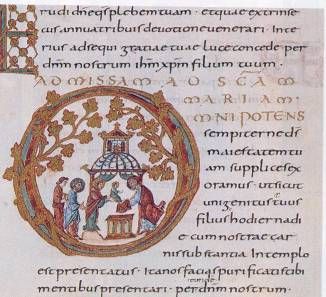 rudi dne qs plebem tuam. et quae extrinse
cus annua tribuis devotione venerari. Inte
rius adsequi gratiae tuae luce concede. per
dnm nostrum ihm xpm filium tuum.
AD MISSAM AD SCAM
MARIAM.
MNIPOTENS
sempiterne ds
maiestatem tu
am supplices ex
oramus. ut sicut
unigenitus tuus
filius hodierna di
e cum nostrae car
nis substantia In templo
est praesentatus. Ita nos facias purificatis tibi
mentibus presentari. per dnm nostrum.